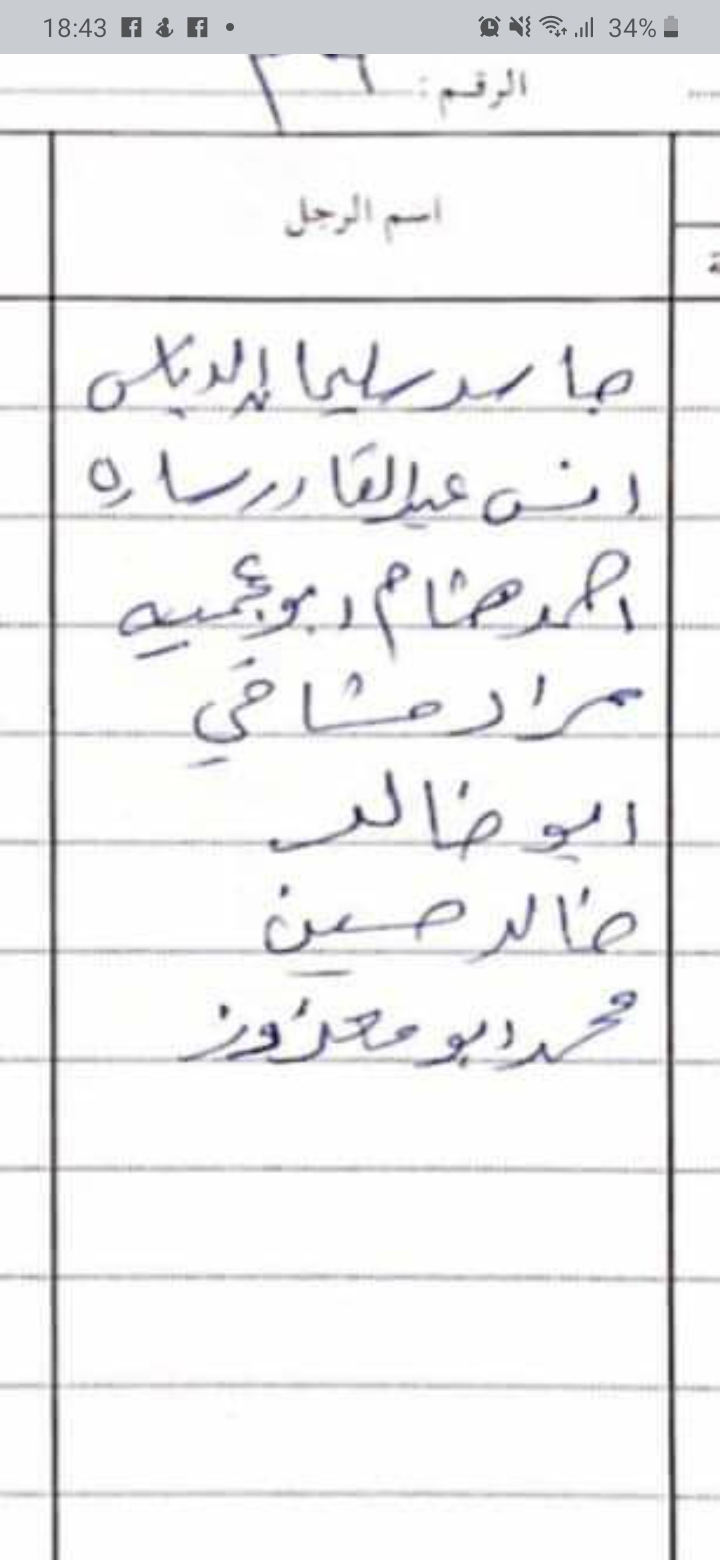 18:43 34%
الرقم : ٣٦
اسم الرجل
ة
سليما الدباس
انس عبدالقادر ساره
احمد هشام ابو عجميه
مراد مشاقي
ابو خالد
خالد حسين
محمد ابو معزوز